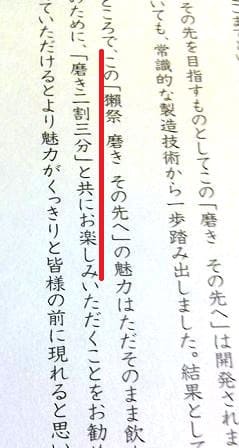 その先を目指すものとしてこの「磨き　その先へ」は開発されま
いても、常識的な製造技術から一歩踏み出しました。結果として
ところで、この「獺祭　磨き　その先へ」の魅力はただそのまま飲
のために、「磨き二割三分」と共にお楽しみいただくことをお勧め
ていただけるとより魅力がくっきりと皆様の前に現れると思い